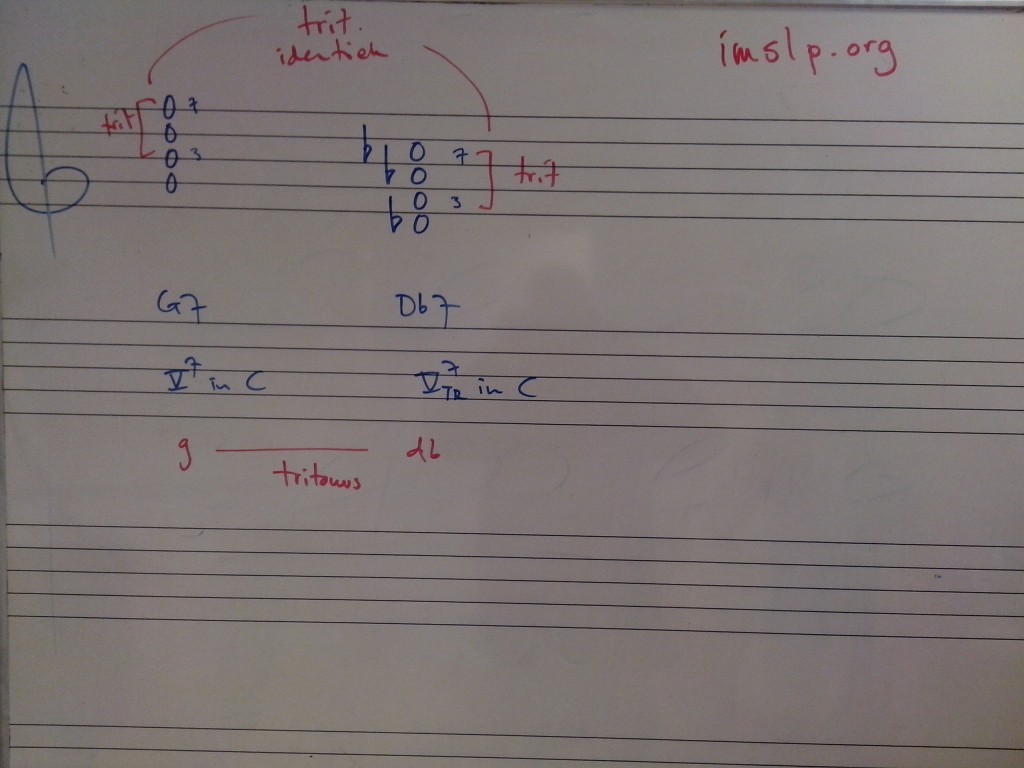 trit.
identisch
imslp.org
trit
7
3
7
3
trit
G7
Db7
V7 in C
V7TR in C
g
db
tritonus